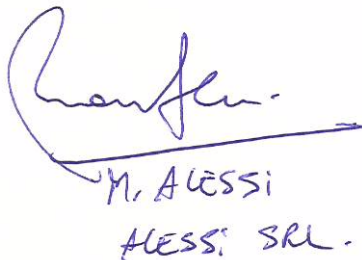 M. ALESSI
ALESSI SRL.